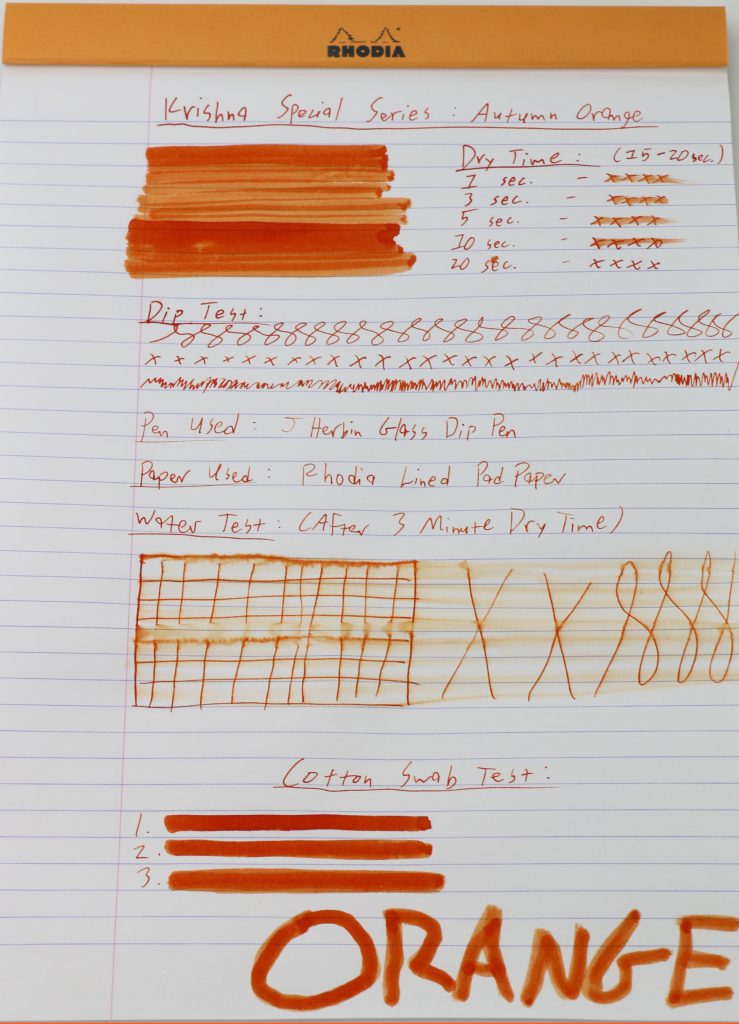 RHODIA
Krishna Special Series : Autumn Orange
Dry Time : (15-20sec.)
1 sec. - xxxx
3 sec. - xxxx
5 sec. - xxxx
10 sec. - xxxx
20 sec. - xxxx
Dip Test :
x x x x x x x x x x x x x x x x x x x x x x x x x x
Pen Used : J Herbin Glass Dip Pen
Paper Used : Rhodia Lined Pad Paper
Water Test : (After 3 Minute Dry Time)
X X
Cotton Swab Test :
1.
2.
3.
ORANGE